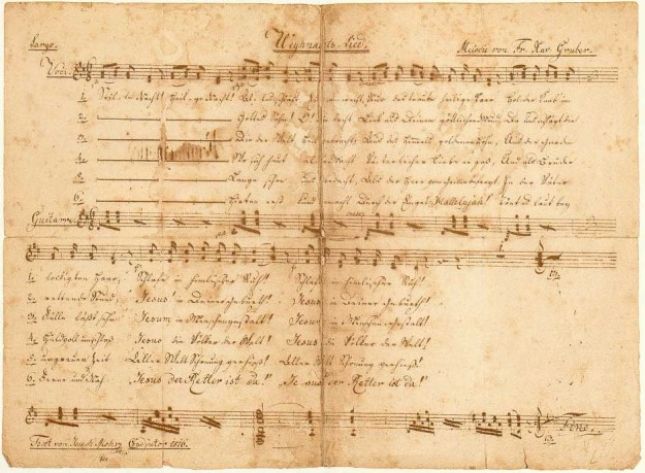 Largo. Weyhnachts-Lied. Melodie von Fr. Xav. Gruber.
Voci.
1. Stille Nacht! Heilige Nacht! Alles schläft, Einsam wacht, Nur das traute heilige Paar. Holder Knab im
2. Gottes Sohn! O! wie lacht Lieb' aus deinem göttlichen Mund, Da schlägt
3. Die der Welt Heil gebracht, Aus des Himmels goldenen Höhn, Uns der Gnaden
4. Wo sich heut alle Macht Väterlicher Liebe ergoß, Und als Bruder
5. Lange schon uns bedacht, Als der Herr vom Grimme befreyt In der Väter
6. Hirten erst kund gemacht Durch der Engel Hallelujah! Tönt es laut bey
1. lockigten Haar, Schlafe in himmlischer Ruh! Schlafe in himmlischer Ruh!
2. rettende Stund, Jesus in deiner Geburth! Jesus in deiner Geburth!
3. Fülle läßt sehn Jesum in Menschengestalt! Jesum in Menschengestalt!
4. Huldvoll umschloß Jesus die Völker der Welt! Jesus die Völker der Welt!
5. urgrauer Zeit Aller Welt Schonung verhieß! Aller Welt Schonung verhieß!
6. Ferne und Nah Jesus der Retter ist da! Jesus der Retter ist da!
Fine.
Text von Joseph Mohr Coadjutor 1816.